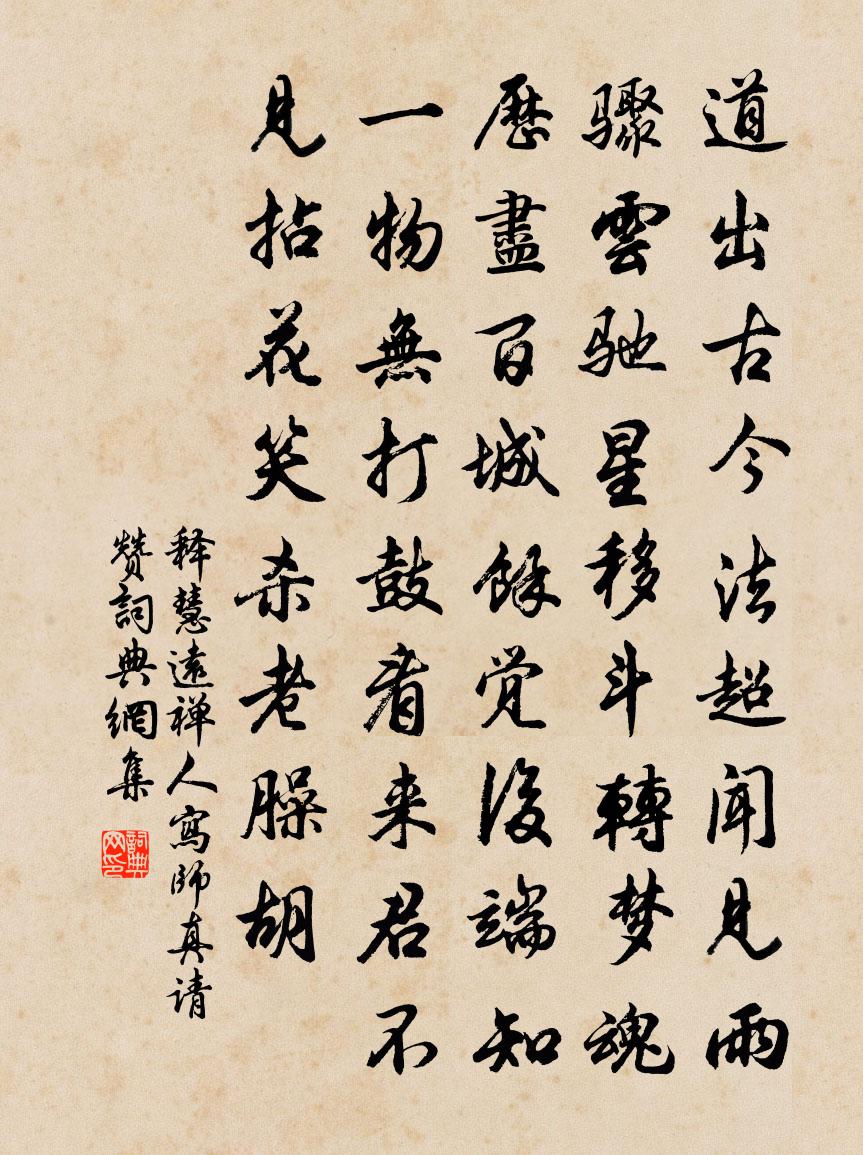 道出古今法超聞見雨
驟雲馳星移斗轉梦魂
歷盡百城餘覚後端知
一物無打鼓看来君不
見拈花笑杀老臊胡
释慧遠禅人寫師真请
赞詞典網集
詞典网印